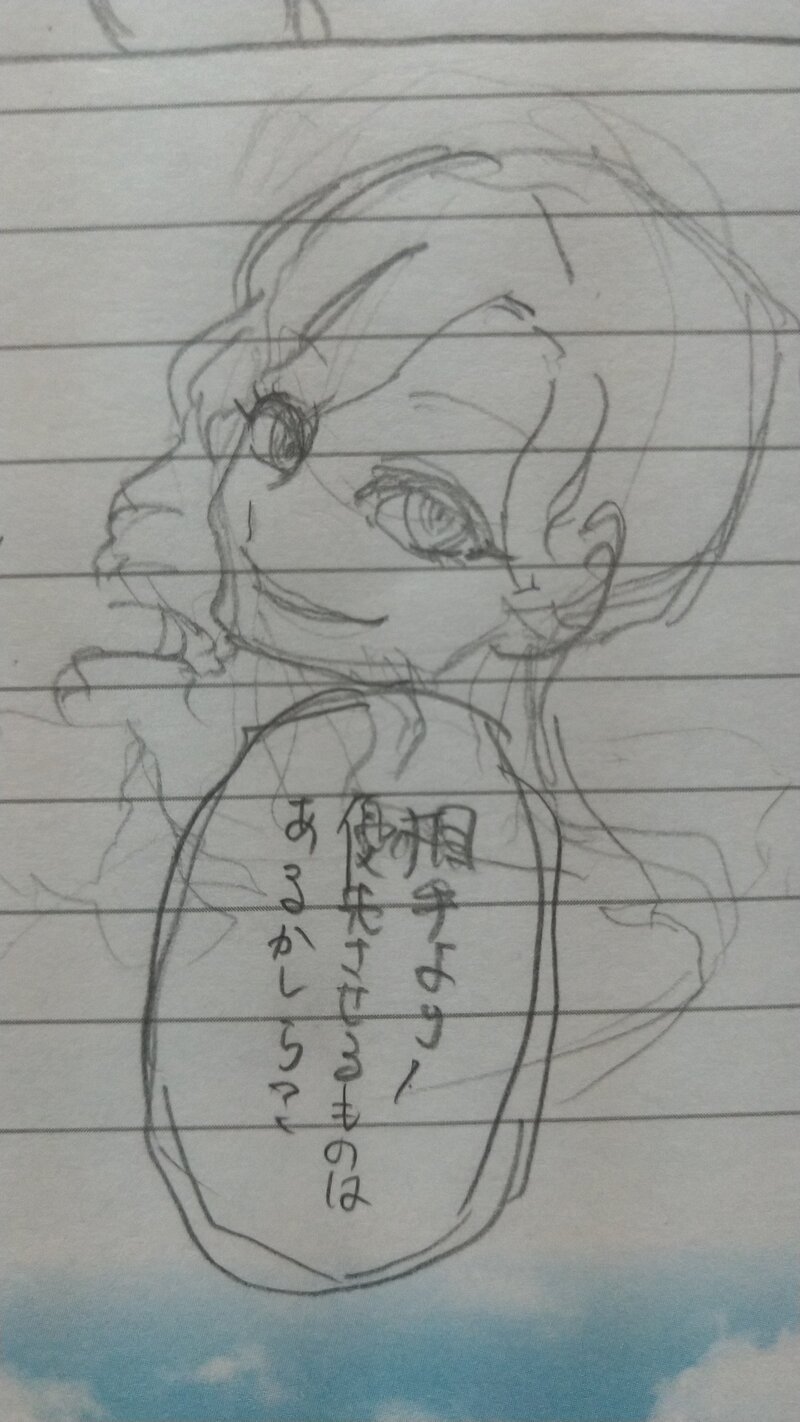 相手より、
優先させるものは
あるかしら?